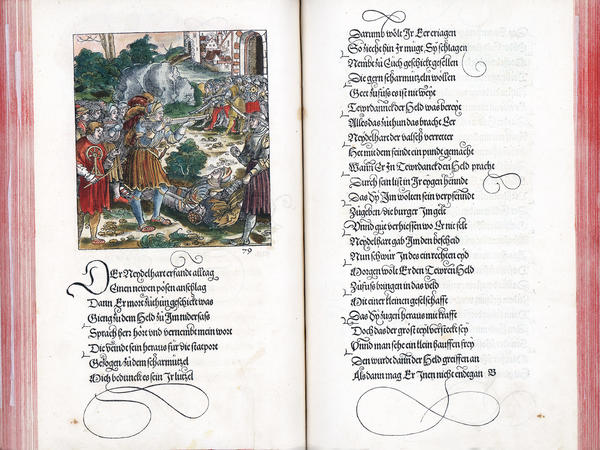 79
DEr Neydelhart erfande all tag
Einen newen posen anschlag
Dann Er mort zůthůn geschickt was
Gieng zů dem Held zů Im nidersass
Sprach herr hört und vernembt mein wort
Die veindt sein heraus für die statport
Gezogen zů dem scharmützel
Mich bedunckt es sein Ir lützel
Darumb wölt Ir Eer eriagen
So ziecht hin Ir mügt Sy schlagen
Nembt zů Euch geschickt gesellen
Die gern scharmützeln wollen
Geet zůfůss es ist nit weyt
Tewrdannck der Held was bereyt
Alles das zůthun das bracht Eer
Neydelhart der valsch verretter
Het mit dem feinde ein pundt gemacht
Wann Er In Tewrdanck den Held pracht
Durch sein list in Ir eygen henndt
Das Sy Im wölten sein verpfenndt
Zůgeben die burger Im gelt
Vnnd gůt verhiessen wo Er nit felt
Neydelhart gab Im den bescheid
Nun schwür In des ein rechten eyd
Morgen wölt Er den Tewren Held
Zůfůss bringen in das veld
Mit einer kleinen geselschafft
Das Sy zugen heraus mit krafft
Doch das der gröst teyl versteckt sey
Vnnd man sehe ein klein hauffen frey
Den wurdt dann der Held greiffen an
Als dann mag Er Inen nicht endtgan B